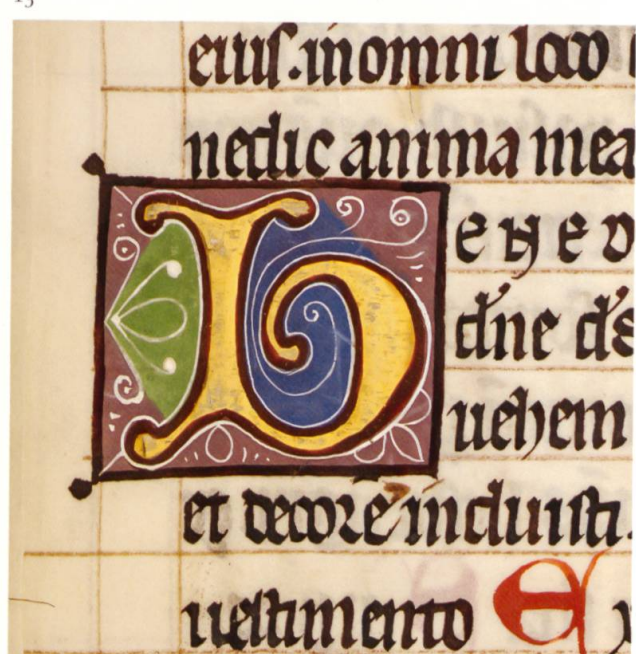 eius. in omni loco
nedic anima mea
Bened
dn̄e ds̄
uehem
et decore induisti.
uestimento E